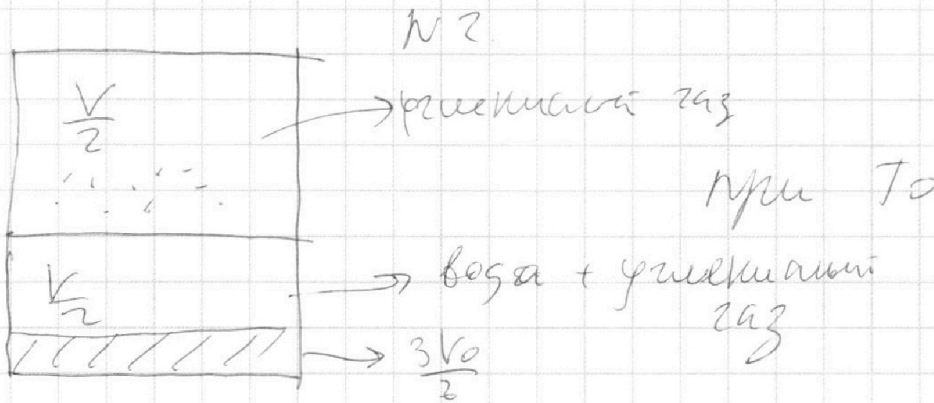 N2
V/2 → углекислый газ
при T0
V/2 → вода + углекислый
газ
→ 3V0/2